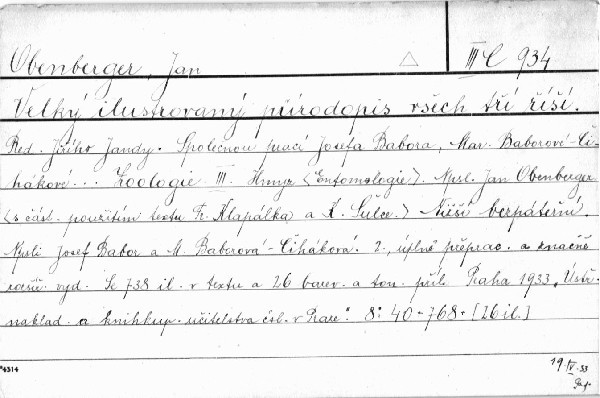 Obenberger, Jan △ III C 934
Velký ilustrovaný přírodopis všech tří říší.
Red. Jiřího Jandy. Společnou prací Josefa Babora, Mar. Baborové-Či-
hákové... Zoologie III. Hmyz <Entomologie>. Npsl. Jan Obenberger
<s část. použitím textu Fr. Klapálka a K. Šulce.> Nižší bezpáteřní.
Npsli Josef Babor a M. Baborová-Čiháková. 2., úplně přeprac. a značně
rozšíř. vyd. Se 738 il. v textu a 26 barev. a ton. příl. Praha 1933 „Ústř.
naklad. a knihkup. učitelstva čsl. v Praze". 8: 40-768-[26il.]
*4314 19 IV. 33